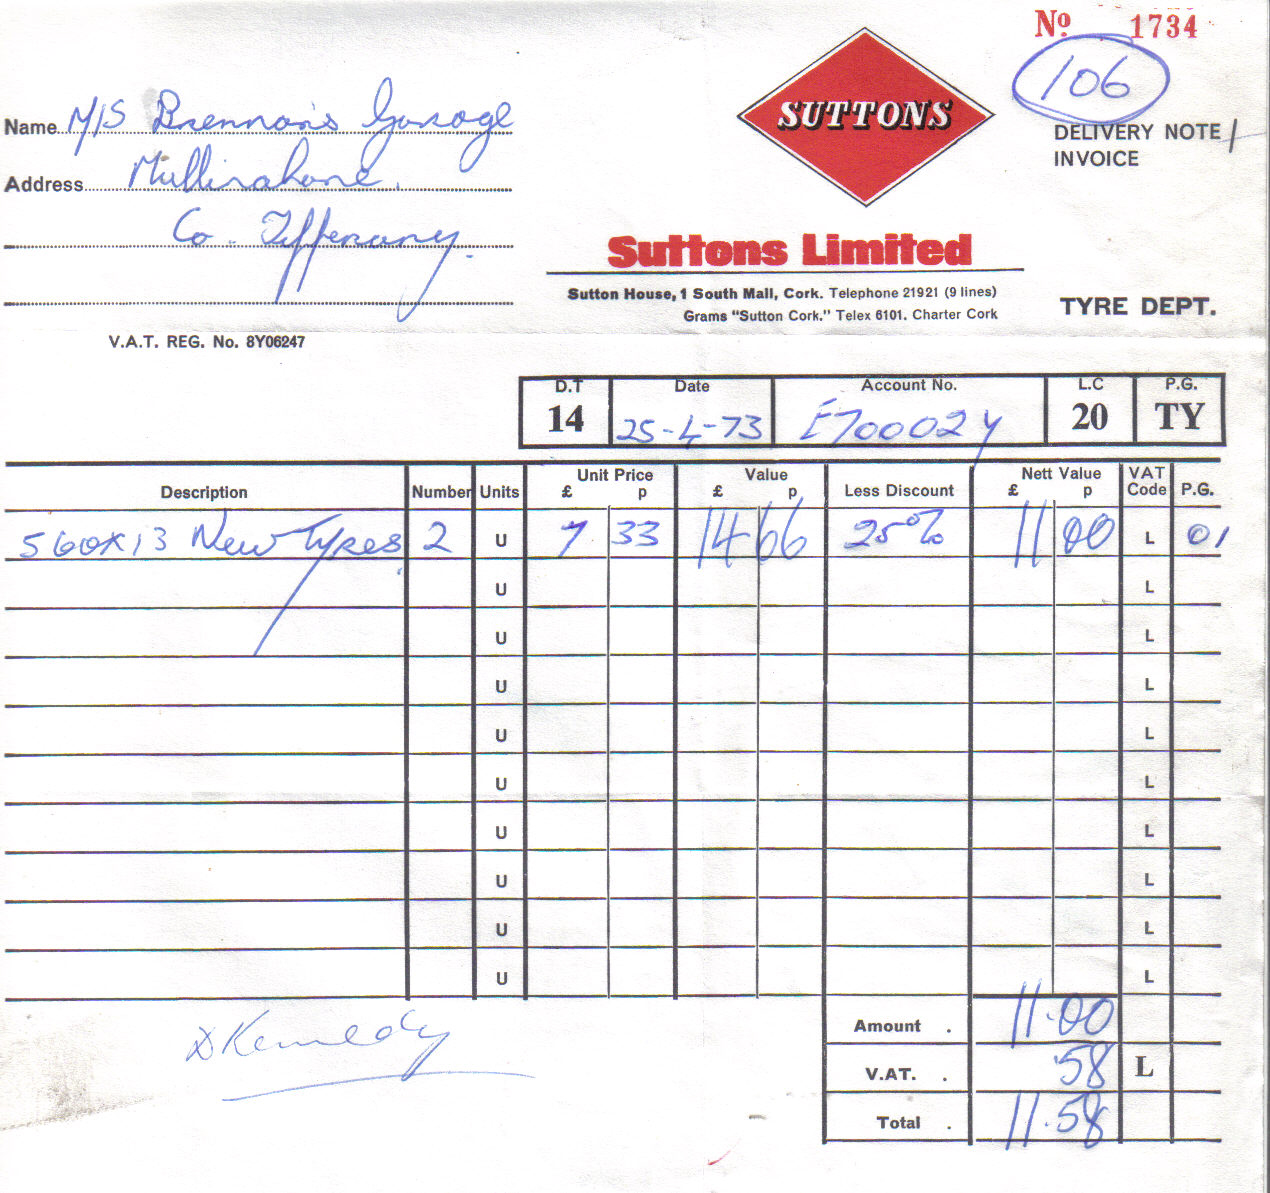 Nº 1734
106
SUTTONS
DELIVERY NOTE
INVOICE
Name M/S Brennan's Garage
Address Mullinahone.
Co. Tipperary.
Suttons Limited
Sutton House, 1 South Mall, Cork. Telephone 21921 (9 lines)
Grams "Sutton Cork." Telex 6101. Charter Cork
TYRE DEPT.
V.A.T. REG. No. 8Y06247
D.T Date Account No. L.C P.G.
14 25-4-73 E700024 20 TY
Description Number Units Unit Price £ p Value £ p Less Discount Nett Value £ p VAT Code P.G.
560x13 New Tyres 2 U 7 33 14 66 25% 11 00 L 01
U L
U L
U L
U L
U L
U L
U L
U L
U L
Amount . 11.00
V.A.T. . .58 L
Total . 11.58
D Kennedy